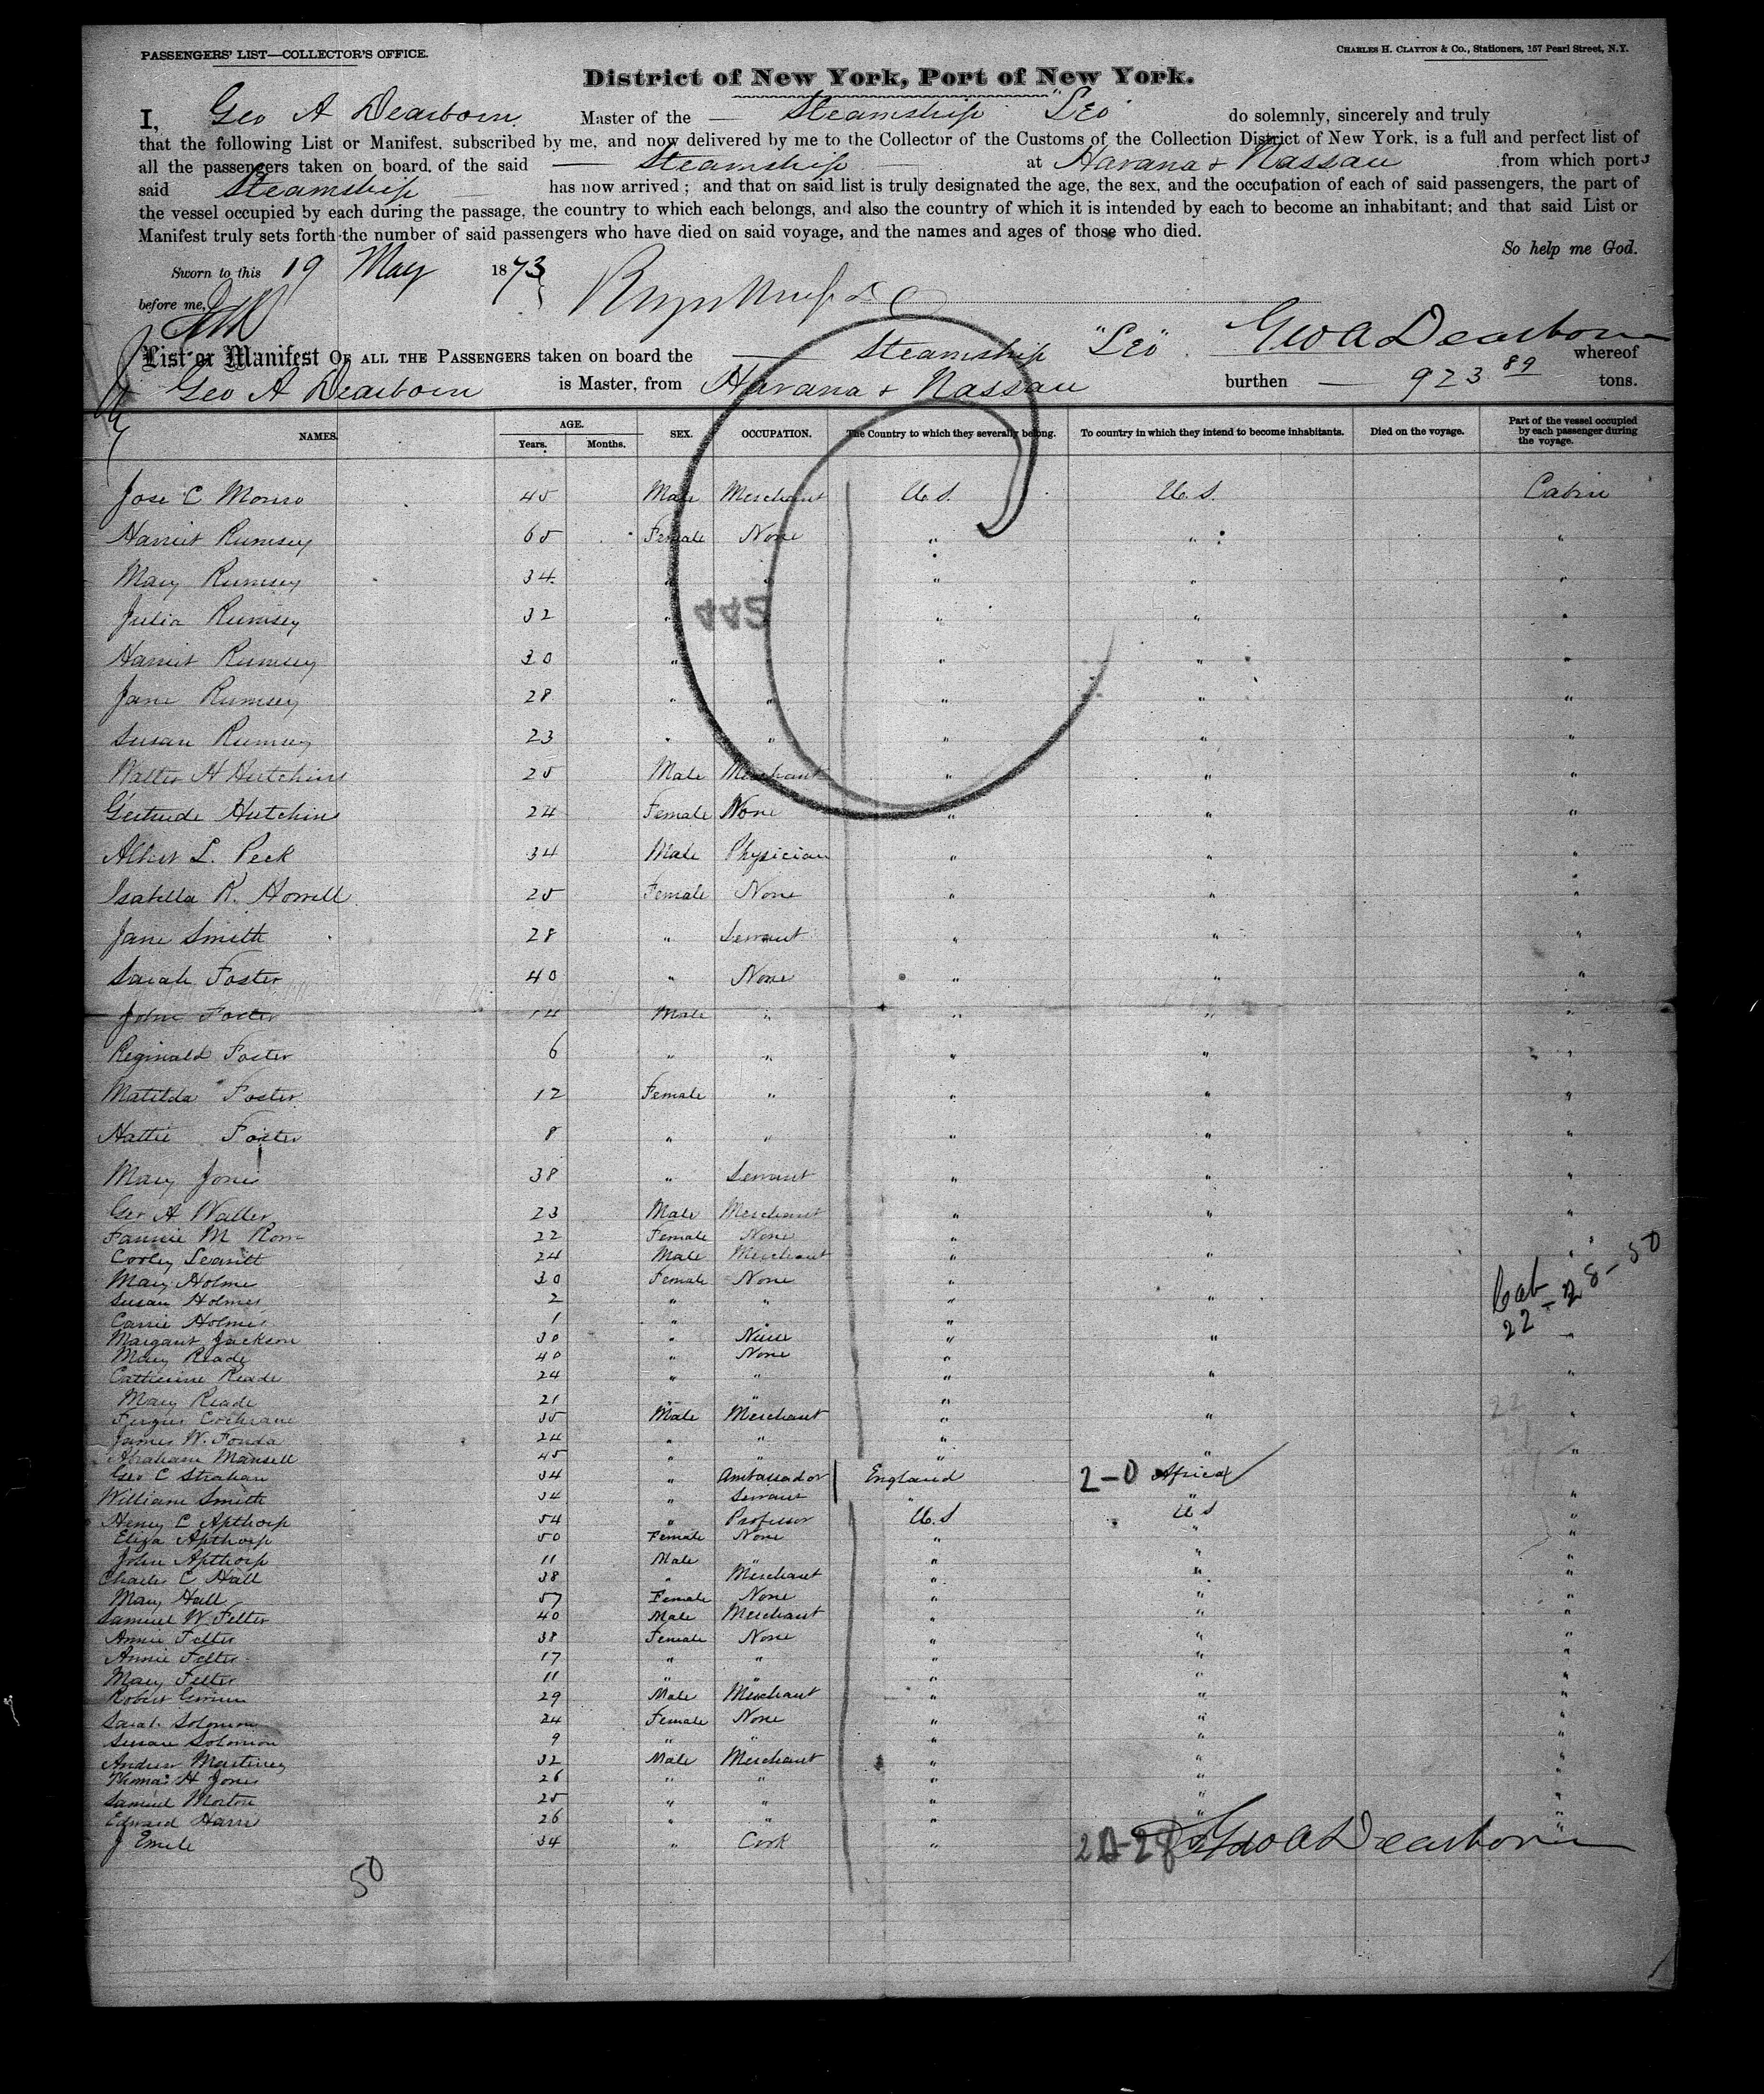 PASSENGERS' LIST—COLLECTOR'S OFFICE.
CHARLES H. CLAYTON & Co., Stationers, 157 Pearl Street, N.Y.
District of New York, Port of New York.
I, Geo A Dearborn Master of the Steamship "Leo" do solemnly, sincerely and truly
that the following List or Manifest, subscribed by me, and now delivered by me to the Collector of the Customs of the Collection District of New York, is a full and perfect list of
all the passengers taken on board of the said Steamship at Havana & Nassau from which ports
said Steamship has now arrived; and that on said list is truly designated the age, the sex, and the occupation of each of said passengers, the part of
the vessel occupied by each during the passage, the country to which each belongs, and also the country of which it is intended by each to become an inhabitant; and that said List or
Manifest truly sets forth the number of said passengers who have died on said voyage, and the names and ages of those who died.
So help me God.
Sworn to this 19 May 1873
before me,
Geo A Dearborn
List or Manifest OF ALL THE PASSENGERS taken on board the Steamship "Leo" whereof
Geo A Dearborn is Master, from Havana & Nassau burthen 923 89 tons.
NAMES. AGE. Years. Months. SEX. OCCUPATION. The Country to which they severally belong. To country in which they intend to become inhabitants. Died on the voyage. Part of the vessel occupied by each passenger during the voyage.
Jose C 45 Male Merchant U.S. U.S. Cabin
Harriet Rumsey 65 Female None " " "
Mary Rumsey 34 " " " " "
Julia Rumsey 32 " " " "
442
Harriet Rumsey 30 " " " "
Jane Rumsey 28 " " " " "
Susan Rumsey 23 " " " " "
Walter H Hutchins 25 Male Merchant " " "
Gertrude Hutchins 24 Female None " " "
Albert L. Peck 34 Male Physician " " "
Isabella R. Howell 25 Female None " " "
Jane Smith 28 " Servant " " "
Sarah Foster 40 " None " " "
John Foster 14 Male " " " "
Reginald Foster 6 " " " " "
Matilda Foster 12 Female " " " "
Hattie Foster 8 " " " " "
Mary Jones 38 " Servant " " "
Geo A Waller 23 Male Merchant " " "
Fannie M 22 Female None " "
Cooley Leavitt 24 Male Merchant " " "
Mary Holmes 30 Female None "
Cab 22-28-50
Susan Holmes 2 " " " "
Carrie Holmes 1 " " "
Margaret Jackson 30 " Nurse " " "
Mary Reade 40 " None "
Catherine Reade 24 " " " " "
Mary Reade 21 " " "
Fergus Cochrane 35 Male Merchant " " "
James W. Fonda 24 " " "
Abraham Mansell 45 " " " " "
Geo C Strahan 34 " Ambassador England 2-0 Africa
William Smith 34 " Servant " " "
Henry C Apthorp 54 " Professor U.S U S "
Eliza Apthorp 50 Female None " " "
John Apthorp 11 Male " " " "
Charles C Hall 38 " Merchant " " "
Mary Hall 57 Female None " " "
Samuel W. Felter 40 Male Merchant " " "
Annie Felter 38 Female None " " "
Annie Felter 17 " " " " "
Mary Felter 11 " " " " "
Robert 29 Male Merchant " " "
Sarah Solomon 24 Female None " " "
Susan Solomon 9 " " " " "
Andrew Martinez 32 Male Merchant " " "
Thomas H Jones 26 " " " " "
Samuel Morton 25 " " " " "
Edward Harris 26 " " " " "
J Emile 34 " Cook " "
Geo A Dearborn
50